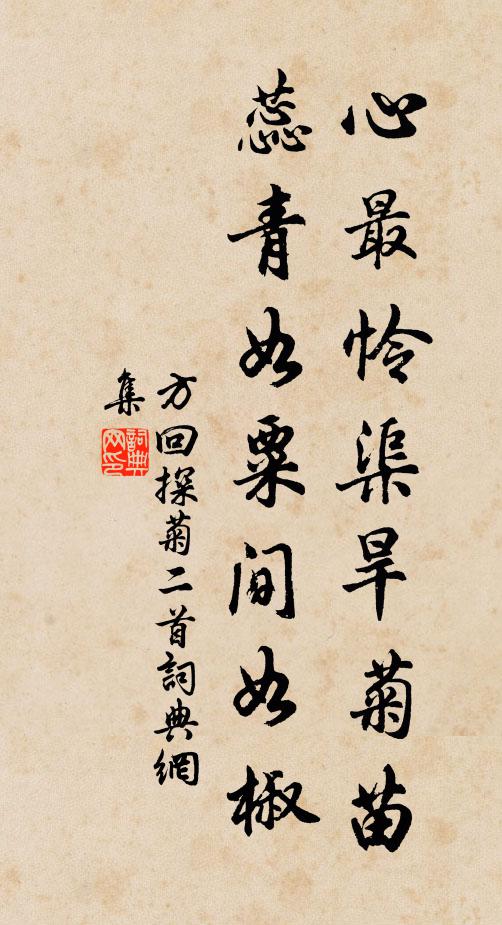 心最怜渠旱菊苗
蕊青如粟間如椒
方回探菊二首詞典網
集
詞典
网印